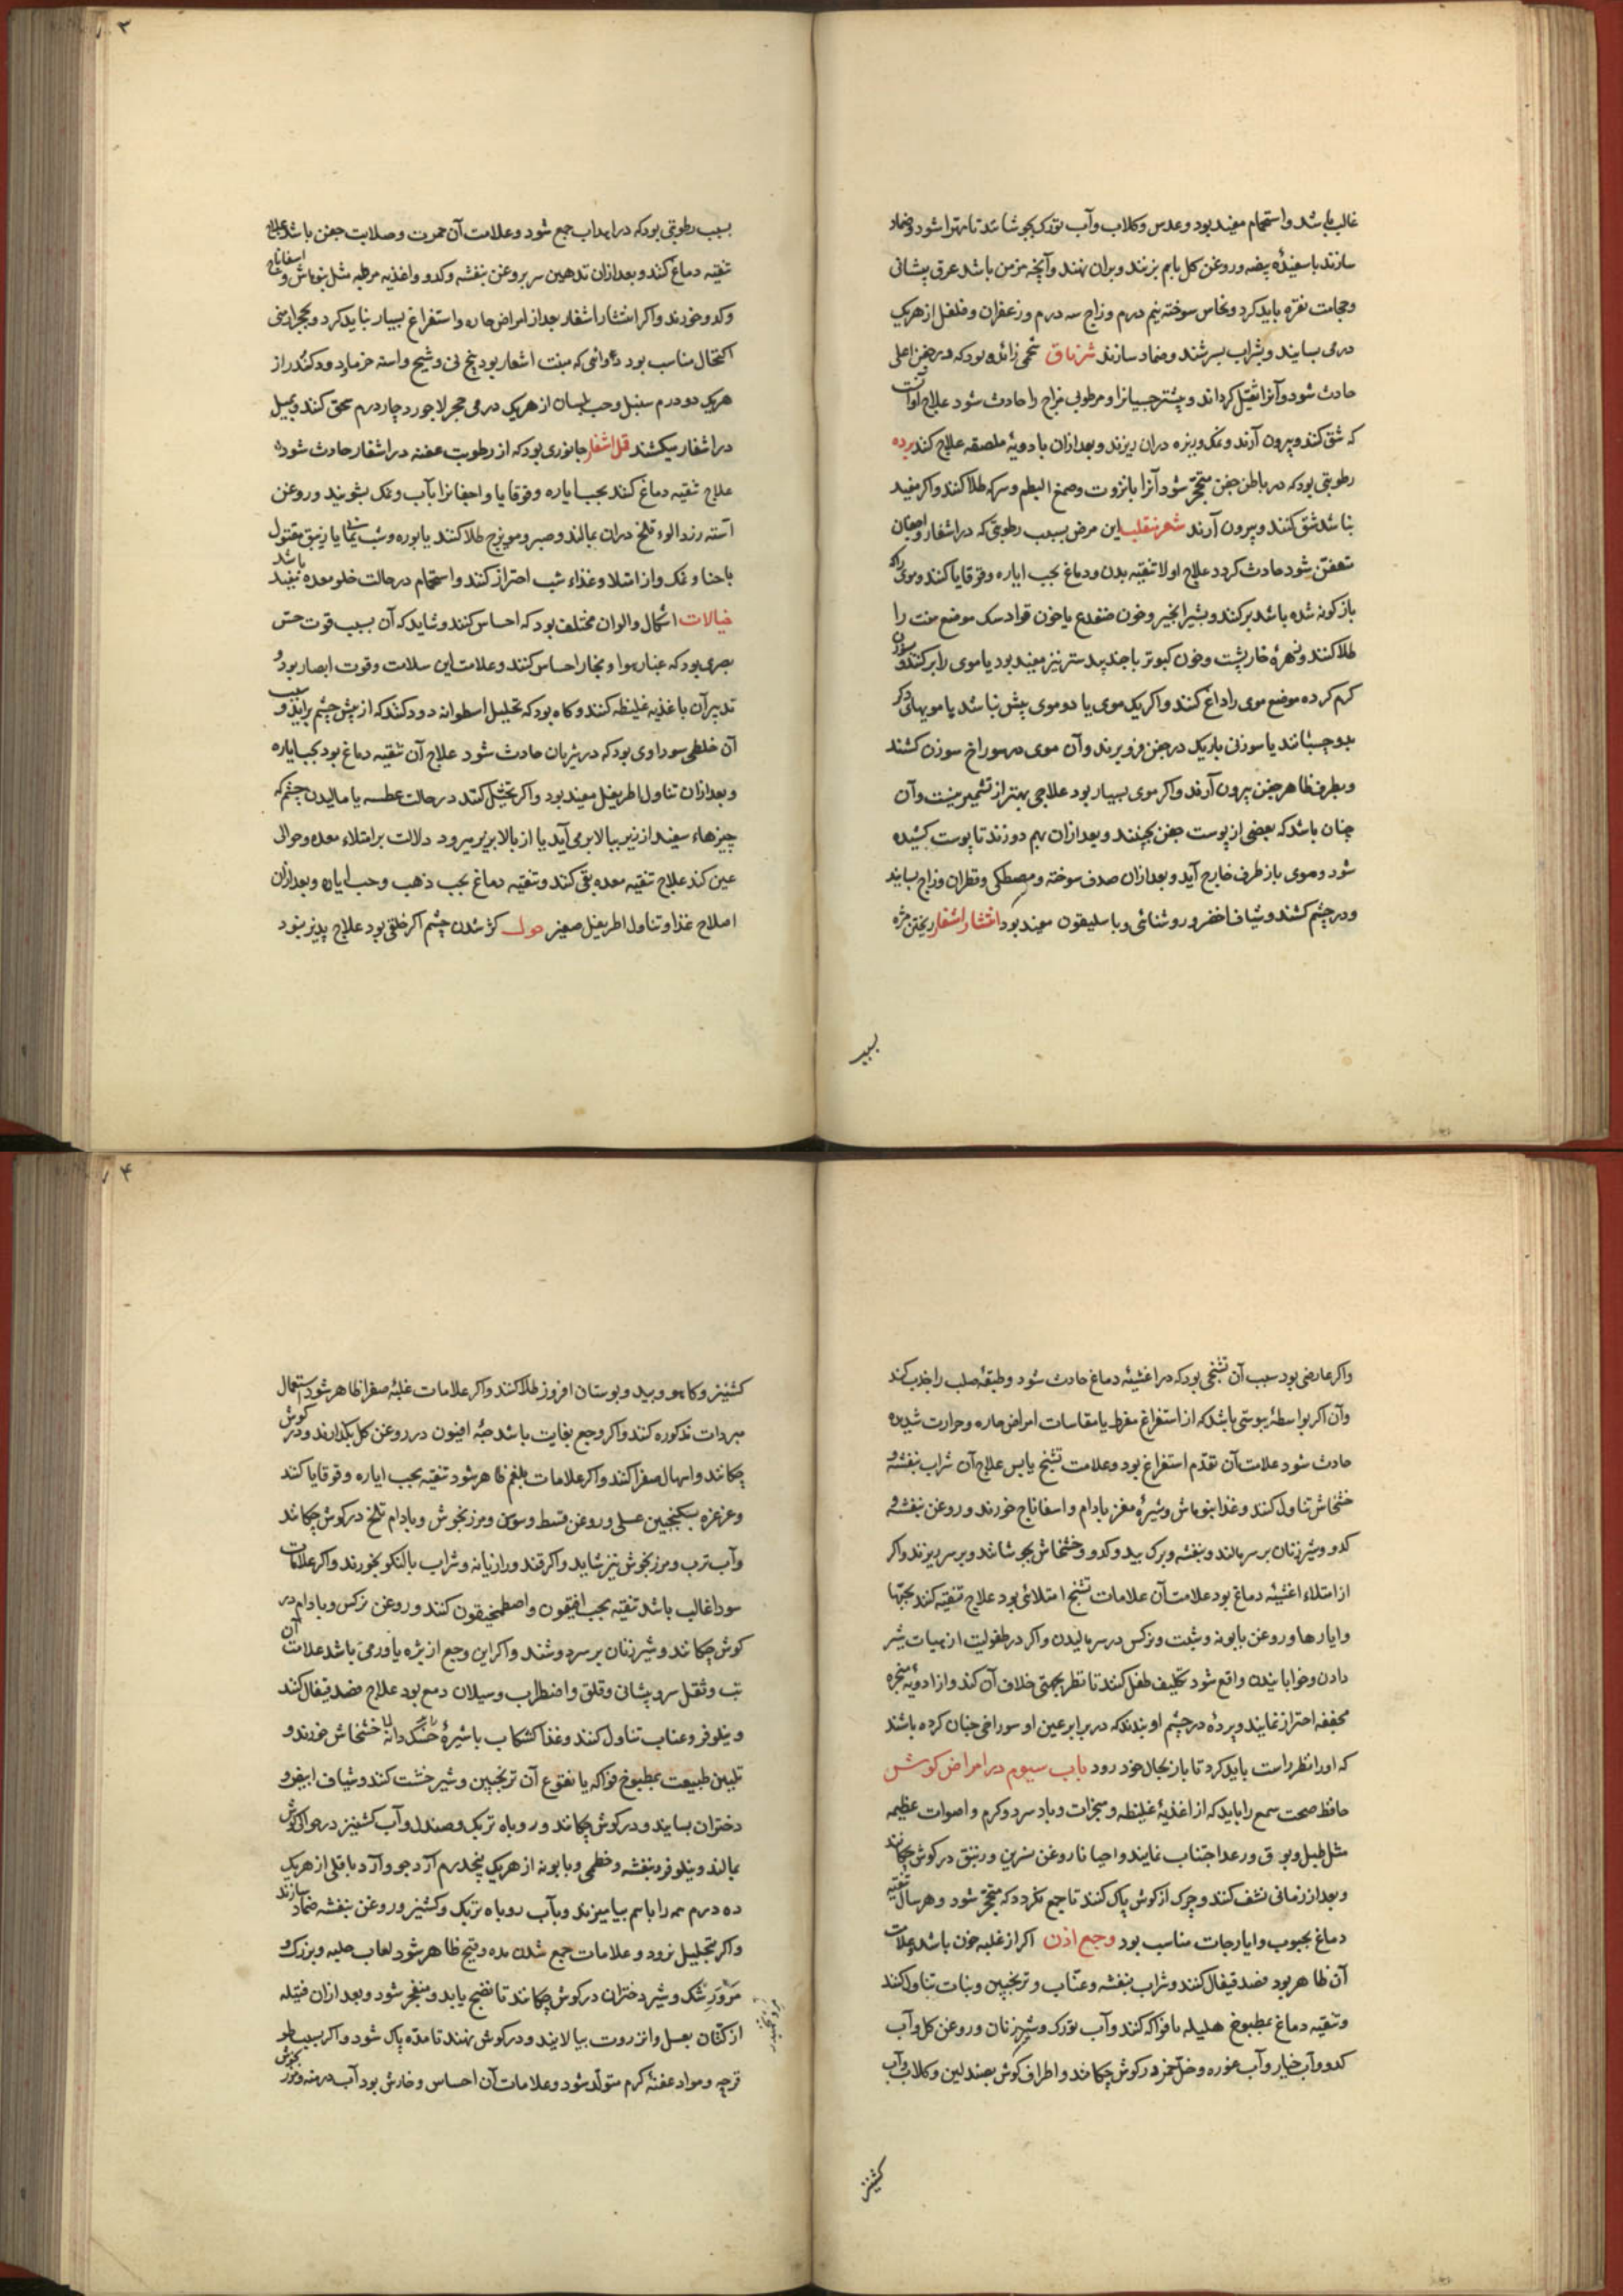 غالب باشد و استحمام مفید بود و عدس و کلاب و آب تورک بجوشانند تا مهرا شود و ضماد
سازند با سفیدهٔ بیضه و روغن کل باهم بزنند و بران نهند و آنچه مزمن باشد عرق پیشانی
و حجامت نقره باید کرد و نحاس سوخته نیم درم و زاج سه درم و زعفران و فلفل از هریک
درمی بسایند و بشراب بسرشند و ضماد سازند شرناق شحمی زائده بود که در جفن اعلی
حادث شود و آنرا ثقیل کرداند و بیشتر صبیانرا و مرطوبی مزاج را حادث شود علاج او آنست
که شق کنند و بیرون آرند و نمک و زیره دران ریزند و بعد ازان بادویهٔ ملصقه علاج کنند برده
رطوبتی بود که در باطن جفن متحجر شود آنرا بانزروت و صمغ البطم و سرکه طلا کنند و اکر مفید
نباشد شق کنند و بیرون آرند شعر منقلب این مرض بسبب رطوبتی که در اشفار و اجفان
متعفن شود حادث کردد علاج اولا تنقیه بدن و دماغ بحب ایاره و قوقایا کنند و موی را که
باز کونه شده باشد برکنند و بشیر انجیر و خون ضفدع یا خون قراد سک موضع منبت را
طلا کنند و زهرهٔ خارپشت و خون کبوتر با جندبیدستر نیز مفید بود یا موی را برکنند و سوزن
کرم کرده موضع موی را داغ کنند و اکر یک موی یا دو موی بیش نباشد با مویهای دکر
بدوچسبانند یا سوزنی باریک در جفن فرو برند و آن موی در سوراخ سوزن کشند
و بطرف ظاهر جفن بیرون آرند و اکر موی بسیار بود علاجی بهتر از تشمیر نیست و آن
چنان باشد که بعضی از پوست جفن بچینند و بعد ازان بهم دوزند تا پوست کشیده
شود و موی باز طرف خارج آید و بعد ازان صدف سوخته و مصطکی و قطران و زاج بسایند
و در چشم کشند و شیاف اخضر و روشنائی و باسلیقون مفید بود انتشار اشفار ریختن مژه
بسبب
بسبب رطوبتی بود که در اهداب جمع شود و علامت آن حمرت و صلابت جفن باشد علاج
تنقیه دماغ کنند و بعد ازان تدهین سر بروغن بنفشه و کدو و اغذیه مرطبه مثل بنوماش و اسفاناج
و کدو خورند و اکر انتشار اشفار بعد از امراض حاده و استفراغ بسیار نباید کرد و بحجر ارمنی
اکتحال مناسب بود دوائی که منبت اشعار بود بیخ نی و شیح و استه خرما و دود کندر از
هریک دو درم سنبل و حب بلسان از هریک درمی حجر لاجورد چار درم سحق کنند و بمیل
در اشفار میکشند قمل اشفار جانوری بود که از رطوبت عفنه در اشفار حادث شود
علاج تنقیه دماغ کنند بحب ایاره و قوقایا و اجفانرا بآب و نمک بشویند و روغن
استه زردالوء تلخ دران بمالند و صبر و مویزج طلا کنند یا بوره و شب یمانی یا زیبق مقتول
با حنا و نمک و از امتلا و غذاء شب احتراز کنند و استحمام در حالت خلو معده مفید باشد
خیالات اشکال و الوان مختلف بود که احساس کنند و شاید که آن بسبب قوت حس
بصری بود که غبار هوا و بخار احساس کنند و علامت این سلامت و قوت ابصار بود و
تدبیر آن باغذیه غلیظه کنند و کاه بود که تخییل اسطوانه دود کنند که از پیش چشم برآید و سبب
آن خلطی سوداوی بود که در شریان حادث شود علاج آن تنقیه دماغ بود بحب ایاره
و بعد ازان تناول اطریفل مفید بود و اکر تخیل کنند در حالت عطسه یا مالیدن چشم که
چیزهاء سفید از زیر ببالا برمی آید یا از بالا بزیر میرود دلالت بر امتلاء معده و حوالی
عین کند علاج تنقیه معده بقی کنند و تنقیه دماغ بحب ذهب و حب ایاره و بعد ازان
اصلاح غذا و تناول اطریفل صغیر حول کژ شدن چشم اکر خلقی بود علاج پذیر نبود
۷۴
و اکر عارضی بود سبب آن تشنجی بود که در اغشیهٔ دماغ حادث شود و طبقهٔ صلب را جذب کند
و آن اکر بواسطهٔ یبوستی باشد که از استفراغ مفرط یا مقاسات امراض حاره و حرارت شدیده
حادث شود علامت آن تقدم استفراغ بود و علامت تشنج یابس علاج آن شراب بنفشه و
خشخاش تناول کنند و غذا بنوماش و شیرهٔ مغز بادام و اسفاناج خورند و روغن بنفشه و
کدو و شیر زنان بر سر مالند و بنفشه و برک بید و کدو و خشخاش بجوشانند و بر سر ریزند و اکر
از امتلاء اغشیه دماغ بود علامت آن علامات تشنج امتلائی بود علاج تنقیه کنند بحبها
و ایارها و روغن بابونه و شبت و نرکس در سر مالیدن و اکر در طفولیت از هیات شیر
دادن و خوابانیدن واقع شود تکلیف طفل کنند تا نظر بجهتی خلاف آن کند و از ادویهٔ مبخره
مجففه احتراز نمایند و پردهٔ در چشم او بندند که در برابر عین او سوراخی چنان کرده باشند
که او را نظر راست باید کرد تا باز بحال خود رود باب سیوم در امراض کوش
حافظ صحت سمع را باید که از اغذیهٔ غلیظه و مبخرات و باد سرد و کرم و اصوات عظیمه
مثل طبل و بوق و رعد اجتناب نمایند و احیانا روغن نسرین و زنبق در کوش چکانند
و بعد از زمانی نشف کنند و چرک از کوش پاک کنند تا جمع نکردد که متحجر شود و هر سال تنقیه
دماغ بحبوب و ایارجات مناسب بود وجع اذن اکر از غلبه خون باشد و علامات
آن ظاهر بود فصد قیفال کنند و شراب بنفشه و عناب و ترنجبین و نبات تناول کنند
و تنقیه دماغ بمطبوخ هلیله یا فواکه کنند و آب تورک و شیر زنان و روغن کل و آب
کدو و آب خیار و آب غوره و خل خمر در کوش چکانند و اطراف کوش بصندلین و کلاب و آب
کشنیز
کشنیز و کاهو و بید و بوستان افروز طلا کنند و اکر علامات غلبهٔ صفرا ظاهر شود استعمال
مبردات مذکوره کنند و اکر وجع بغایت باشد حبهٔ افیون در روغن کل بکدازند و در کوش
چکانند و اسهال صفرا کنند و اکر علامات بلغم ظاهر شود تنقیه بحب ایاره و قوقایا کنند
و غرغره بسکنجبین عسلی و روغن قسط و سوسن و مرزنجوش و بادام تلخ در کوش چکانند
و آب ترب و مرزنجوش نیز شاید و اکر قند و رازیانه و شراب بالنکو بخورند و اکر علامات
سودا غالب باشد تنقیه بحب افتیمون و اصطمخیقون کنند و روغن نرکس و بادام در
کوش چکانند و شیر زنان بر سر دوشند و اکر این وجع از بثره یا ورمی باشد علامت آن
تب و ثقل سر و پیشانی و قلق و اضطراب و سیلان دمع بود علاج فصد قیفال کنند
و نیلوفر و عناب تناول کنند و غذا کشکاب با شیرهٔ خسک دانه یا خشخاش خورند و
تلیین طبیعت بمطبوخ فواکه یا نقوع آن ترنجبین و شیرخشت کنند و شیاف ابیض و
دختران بسایند و در کوش چکانند و روباه تربک و صندل و آب کشنیز در حوالی کوش
بمالند و نیلوفر و بنفشه و خطمی و بابونه از هریک پنجدرم آرد جو و آرد باقلی از هریک
ده درم همه را باهم بیامیزند و بآب روباه تربک و کشنیز و روغن بنفشه ضماد سازند
و اکر بتحلیل نرود و علامات جمع شدن مده و قیح ظاهر شود لعاب حلبه و بزرک و
مرو رشک و شیر دختران در کوش چکانند تا نضج یابد و منفجر شود و بعد ازان فتیله
از کتان بعسل و انزروت بیالایند و در کوش نهند تا مده پاک شود و اکر بسبب طول
قرحه و مواد عفنه کرم متولد شود و علامات آن احساس و خارش بود آب درمنه و بوره بکوش